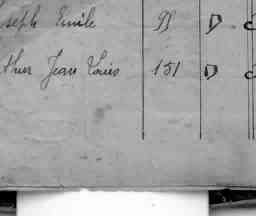 oseph Emile 99 D
thur Jean Louis 151 D